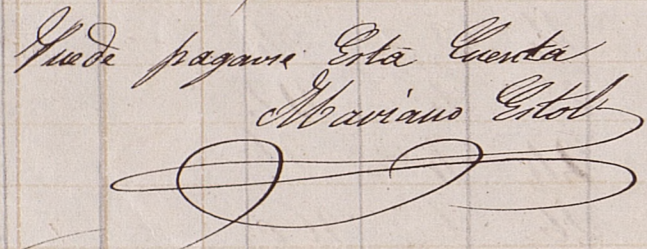 Puede pagarse Esta Cuenta
Mariano Estol